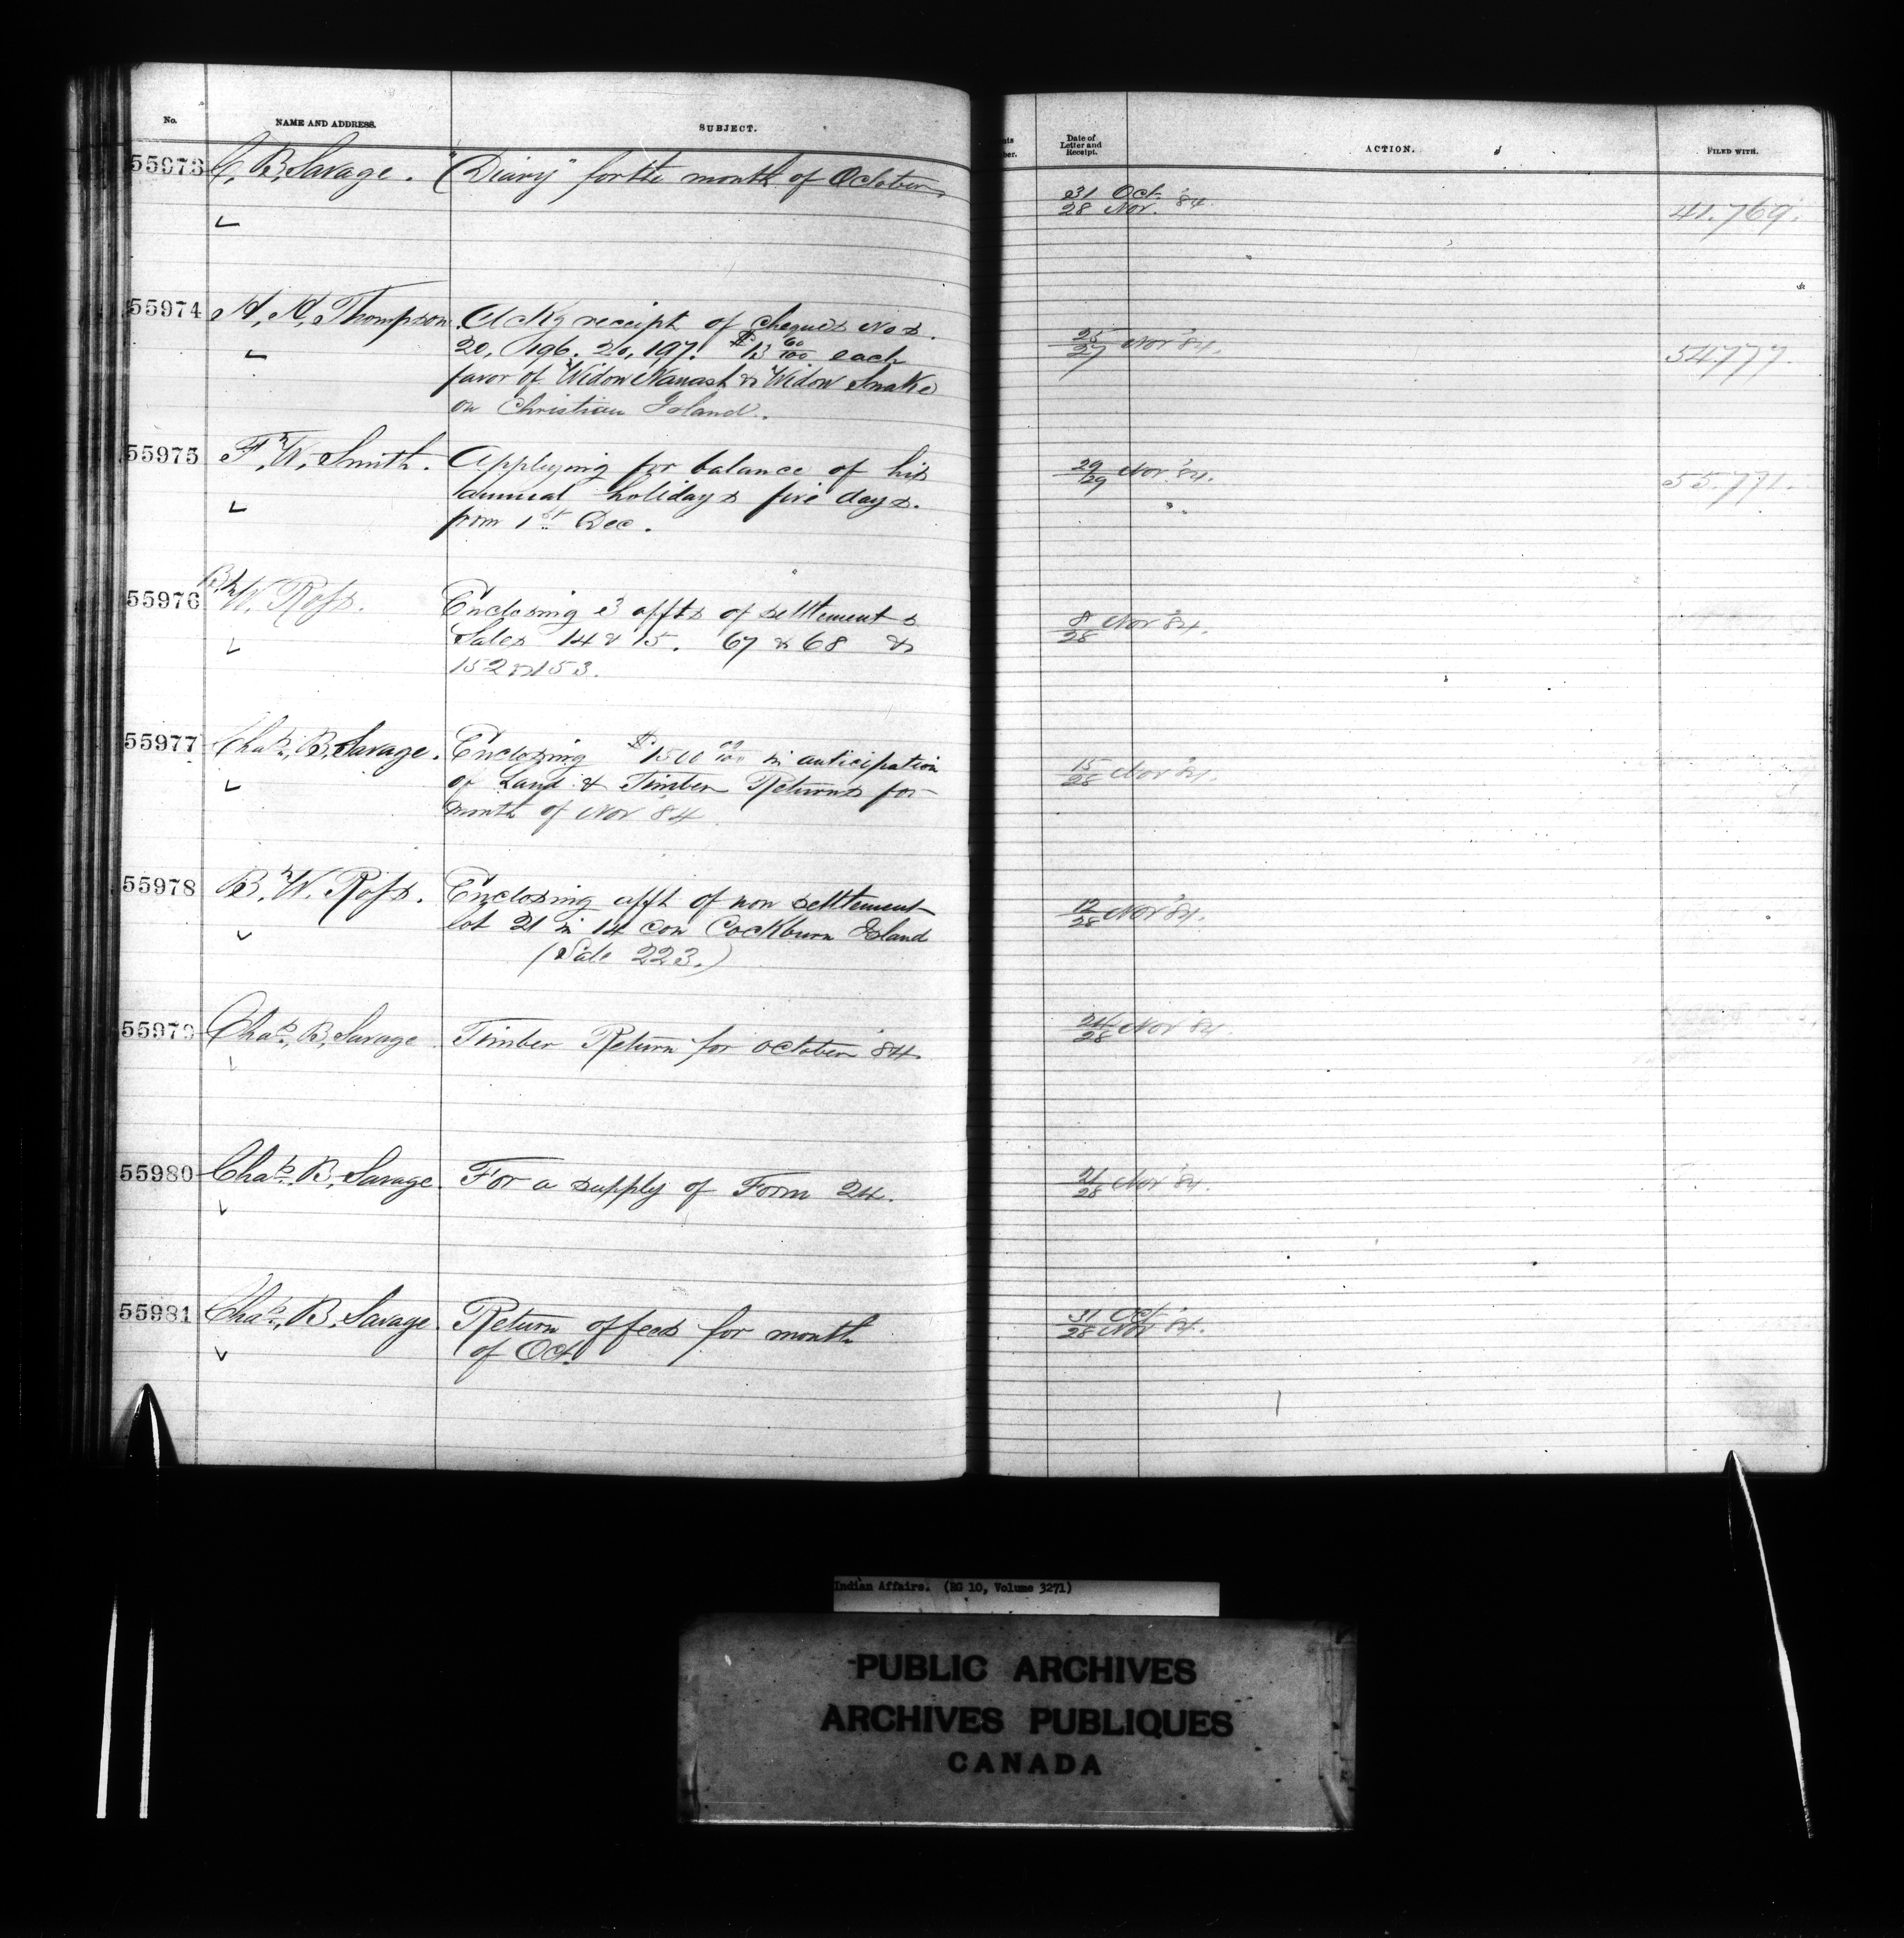 No.
NAME AND ADDRESS.
SUBJECT.
Date of
Letter and
Receipt.
ACTION.
FILED WITH.
55973 C. B. Savage. "Diary" for the month of October
31 Oct.
28 Nov. '84.
41.769.
55974 Thompson. Ackg receipt of cheques Nos.
20,196. 20,197. $13 00/100 each
favor of Widow Nanash & Widow Snake
on Christian Island.
25/27 Nov '84.
54777.
55975 F. W. Smith. Applying for balance of his
annual holidays five days.
from 1st Dec.
29/29 Nov '84.
55.771.
55976 B. W. Ross. Enclosing 3 affts of settlements
Sales 14 & 15. 67 & 68 &
152 & 153.
8/28 Nov '84.
55977 Chas. B. Savage. Enclosing $1500 00/100 in anticipation
of Land & Timber Returns for
month of Nov 84
15/28 Nov '84.
55978 B. W. Ross. Enclosing afft of non settlement
lot 21 in 14 con Cockburn Island
(Sale 223.)
12/28 Nov '84.
55979 Chas. B. Savage. Timber Return for October '84.
24/28 Nov '84.
55980 Chas. B. Savage. For a supply of Form 24.
21/28 Nov '84.
55981 Chas. B. Savage. Return of fees for month
of Oct.
31 Oct.
28 Nov '84.
Indian Affairs. (RG 10, Volume 3271)
PUBLIC ARCHIVES
ARCHIVES PUBLIQUES
CANADA